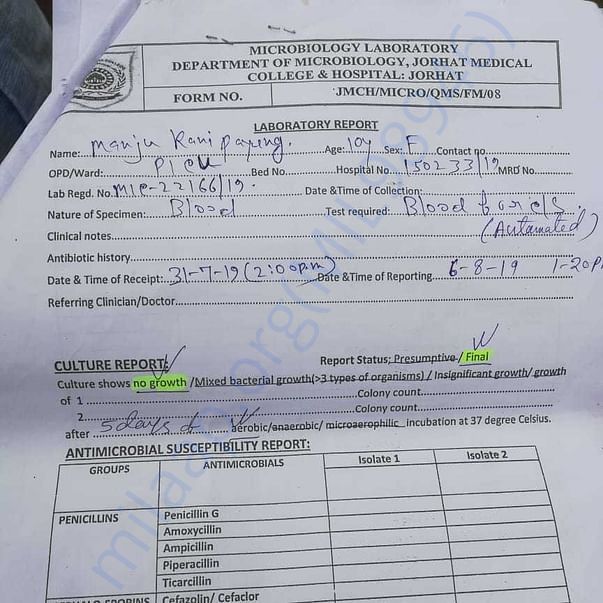 MICROBIOLOGY LABORATORY
DEPARTMENT OF MICROBIOLOGY, JORHAT MEDICAL
COLLEGE & HOSPITAL: JORHAT
FORM NO. JMCH/MICRO/QMS/FM/08
LABORATORY REPORT
Name: Manju Rani Payeng. Age: 10y Sex: F Contact no
OPD/Ward: PICU Bed No. Hospital No. 150233/19 MRD No.
Lab Regd. No. MIC-22166/19. Date &Time of Collection:
Nature of Specimen: Blood Test required: Blood for c/s.
(Automated)
Clinical notes
Antibiotic history
Date & Time of Receipt: 31-7-19 (2:00pm) Date &Time of Reporting 6-8-19 1-20P
Referring Clinician/Doctor
CULTURE REPORT: Report Status: Presumptive / Final
Culture shows no growth /Mixed bacterial growth(>3 types of organisms) / Insignificant growth/ growth
of 1 Colony count
2 Colony count
after 5 days of aerobic/anaerobic/ microaerophilic incubation at 37 degree Celsius.
ANTIMICROBIAL SUSCEPTIBILITY REPORT:
GROUPS ANTIMICROBIALS Isolate 1 Isolate 2
PENICILLINS Penicillin G
Amoxycillin
Ampicillin
Piperacillin
Ticarcillin
Cefazolin/ Cefaclor